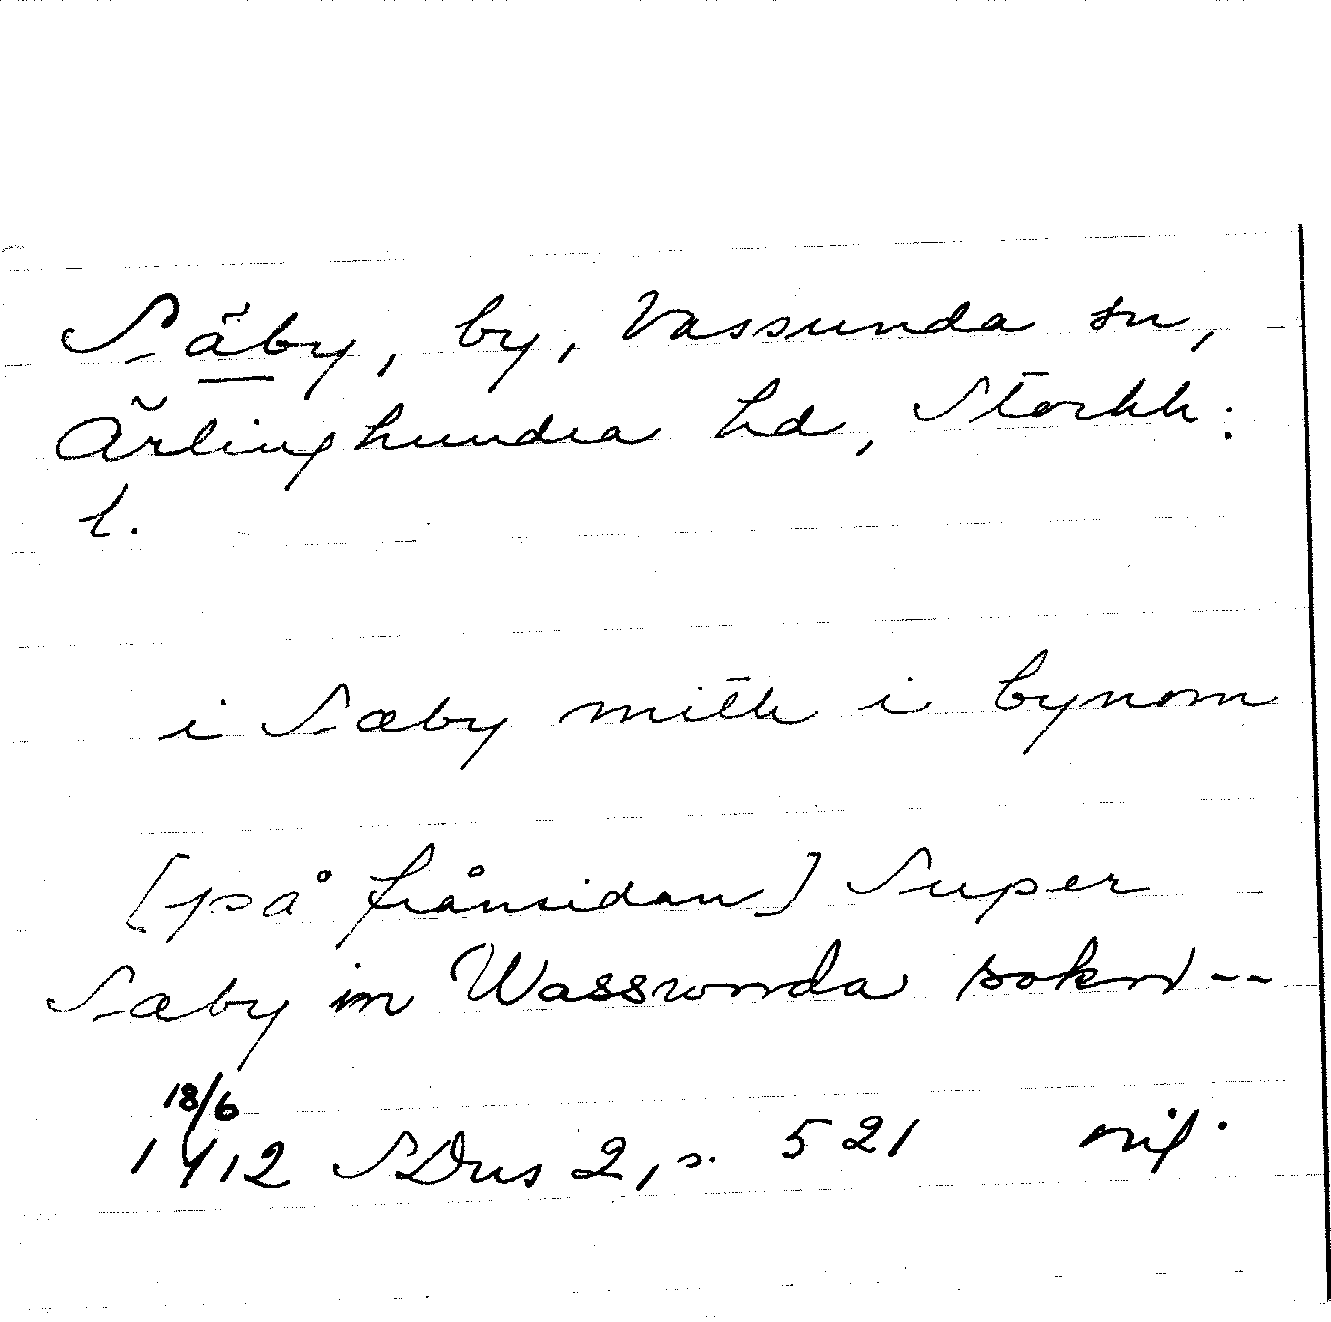 Säby, by, Vassunda sn,
Ärlinghundra hd, Stockh:
l.
i Sæby mith i bynom
[på frånsidan] Super
Sæby in Wasswnda sokn --
18/6
1412 SDns 2, s. 521 orig.